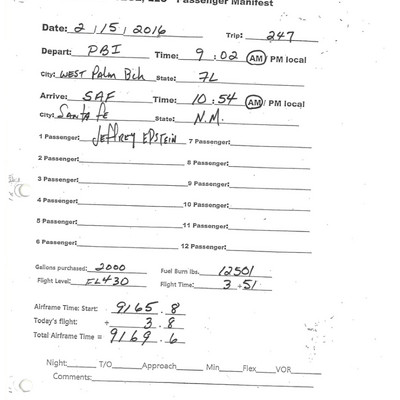 LLC Passenger Manifest
Date: 2/5/2016 Trip: 247
Depart: PBI Time: 9:02 AM/ PM local
City: WEST PALM Bch State: FL
Arrive: SAF Time: 10:54 AM/ PM local
City: SANTA FE State: N.M.
1 Passenger: JEFFREY EPSTEIN 7 Passenger:
2 Passenger: 8 Passenger:
3 Passenger: 9 Passenger:
4 Passenger: 10 Passenger:
5 Passenger: 11 Passenger:
6 Passenger: 12 Passenger:
Gallons purchased: 2000 Fuel Burn lbs. 12501
Flight Level: FL430 Flight Time: 3+51
Airframe Time: Start: 9165.8
Today's flight: + 3.8
Total Airframe Time = 9169.6
Night: T/O Approach Min Flex VOR
Comments: